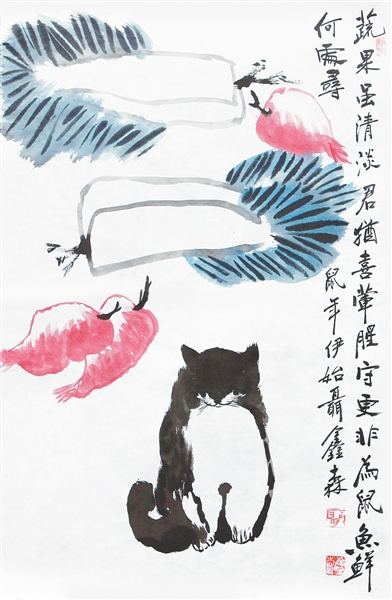 蔬果虽清淡君犹喜荤腥守更非为鼠鱼鲜
何处寻
鼠年伊始聂鑫森